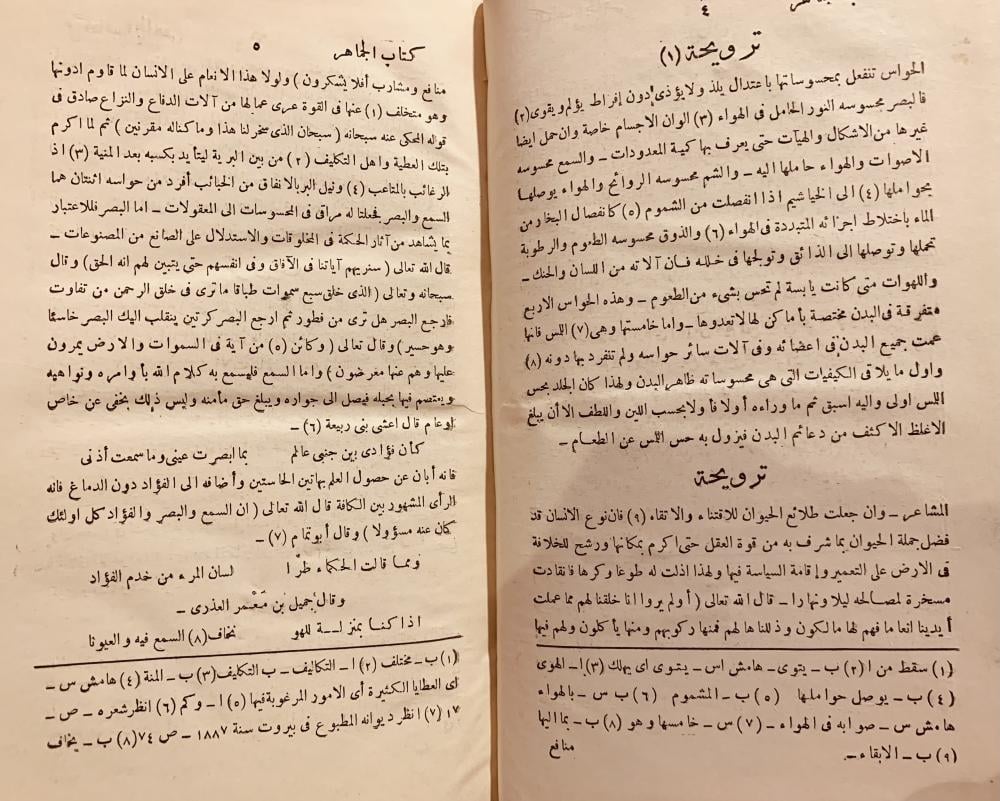 ٤
ترويحة (١)
الحواس تنفعل بمحسوساتها باعتدال يلذ ولا يؤذى دون إفراط يؤلم ويقوى (٢)
فالبصر محسوسه النور الحامل فى الهواء (٣) الوان الاجسام خاصة وان حمل ايضا
غيرها من الاشكال والهيآت حتى يعرف بها كمية المعدودات ــ والسمع محسوسه
الاصوات والهواء حاملها اليه ــ والشم محسوسه الروائح والهواء يوصلها
بحواملها (٤) الى الخياشيم اذا انفصلت من الشموم (٥) كانفصال البخار من
الماء باختلاط اجزائه المتبددة فى الهواء (٦) والذوق محسوسه الطعوم والرطوبة
تحملها وتوصلها الى الذائق وتولجها فى خلله فان آلاته من اللسان والحنك ــ
واللهوات متى كانت يابسة لم تحس بشىء من الطعوم ــ وهذه الحواس الاربع
متفرقة فى البدن مختصة بأماكن لها لا تعدوها ــ واما خامستها وهى (٧) اللمس فانها
عمت جميع البدن فى اعضائه وفى آلات سائر حواسه ولم تنفرد بها دونه (٨)
واول ما يلاقى الكيفيات التى هى محسوساته ظاهر البدن ولهذا كان الجلد بحس
اللمس اولى واليه اسبق ثم ما وراءه أولا فأولا بحسب اللين واللطف الا أن يبلغ
الاغلظ الاكثف من دعائم البدن فيزول به حس اللمس عن الطعام ــ
ترويحة
المشاعر ــ وان جعلت طلائع الحيوان للاقتناء والاتقاء (٩) فان نوع الانسان قد
فضل جملة الحيوان بما شرف به من قوة العقل حتى اكرم بمكانها ورشح للخلافة
فى الارض على التعمير وإقامة السياسة فيها ولهذا اذلت له طوعا وكرها فانقادت
مسخرة لمصالحه ليلا ونهارا ــ قال الله تعالى ( أولم يروا انا خلقنا لهم مما عملت
أيدينا انعاما فهم لها مالكون وذللناها لهم فمنها ركوبهم ومنها يأكلون ولهم فيها
(١) سقط من ا (٢) ب ــ يتوى ــ هامش اس ــ يتوى اى يهلك (٣) ا ــ الهوى
(٤) ب ــ يوصل حواملها (٥) ب ــ المشموم (٦) ب س ــ بالهواء
هامش س ــ صوابه فى الهواء ــ (٧) س ــ خامسها وهو (٨) ب ــ بما اليها
(٩) ب ــ الابقاء ــ.
منافع
كتاب الجماهر
٥
منافع ومشارب أفلا يشكرون ) ولولا هذا الانعام على الانسان لما قاوم ادونها
وهو متخالف (١) عنها فى القوة عرى عما لها من آلات الدفاع والنزاع صادق فى
قوله المحكى عنه سبحانه ( سبحان الذى سخر لنا هذا وما كنا له مقرنين ) ثم لما اكرم
بتلك العطية واهل التكليف (٢) من بين البرية ليتأيد بكسبه بعد المنية (٣) اذ
الرغائب بالمتاعب (٤) ونيل البر بالانفاق من الحبائب أفرد من حواسه اثنتان هما
السمع والبصر فجعلتا له مراقى فى المحسوسات الى المعقولات ــ اما البصر فللاعتبار
بما يشاهد من آثار الحكمة فى المخلوقات والاستدلال على الصانع من المصنوعات ــ
قال الله تعالى ( سنريهم آياتنا فى الآفاق وفى انفسهم حتى يتبين لهم انه الحق ) وقال
سبحانه وتعالى ( الذى خلق سبع سموات طباقا ما ترى فى خلق الرحمن من تفاوت
فارجع البصر هل ترى من فطور ثم ارجع البصر كرتين ينقلب اليك البصر خاسئا
وهو حسير ) وقال تعالى ( وكائن (٥) من آية فى السموات والارض يمرون
عليها وهم عنها معرضون ) واما السمع فليسمع به كلام الله بأوامره ونواهيه
ويعتصم فيها بحبله فيصل الى جواره ويبلغ حق مأمنه وليس ذلك بخفى عن خاص
اوعام قال اعشى بنى ربيعة (٦) ــ
كأن فؤادى بين جنبى عالم بما ابصرت عينى وما سمعت أذنى
فانه أبان عن حصول العلم بهاتين الحاستين وأضافه الى الفؤاد دون الدماغ فانه
الرأى المشهور بين الكافة قال الله تعالى ( ان السمع والبصر والفؤاد كل اولئك
كان عنه مسؤولا ) وقال أبو تمام (٧) ــ
ومما قالت الحكماء طرّا لسان المرء من خدم الفؤاد
وقال جميل بن مَعْمر العذرى ــ
اذا كنا بمنزلــة للهو نخاف (٨) السمع فيه والعيونا
(١) ب ــ مختلف (٢) ا ــ التكاليف ــ ب التكليف (٣) ب ــ المنة (٤) هامش س ــ
اى العطايا الكثيرة أى الامور المرغوبة فيها (٥) ا ــ وكم (٦) انظر شعره ــ ص ــ
١٧ (٧) انظر ديوانه المطبوع فى بيروت سنة ١٨٨٧ ــ ص ٧٤ (٨) ب ــ يخاف